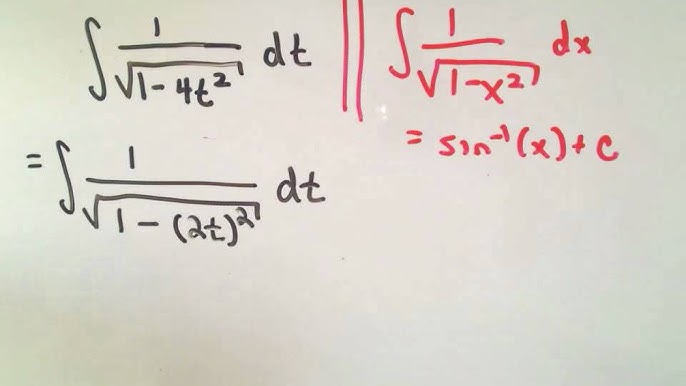 ∫ 1/√(1-4t²) dt
= ∫ 1/√(1-(2t)²) dt
∫ 1/√(1-x²) dx
= sin⁻¹(x)+c